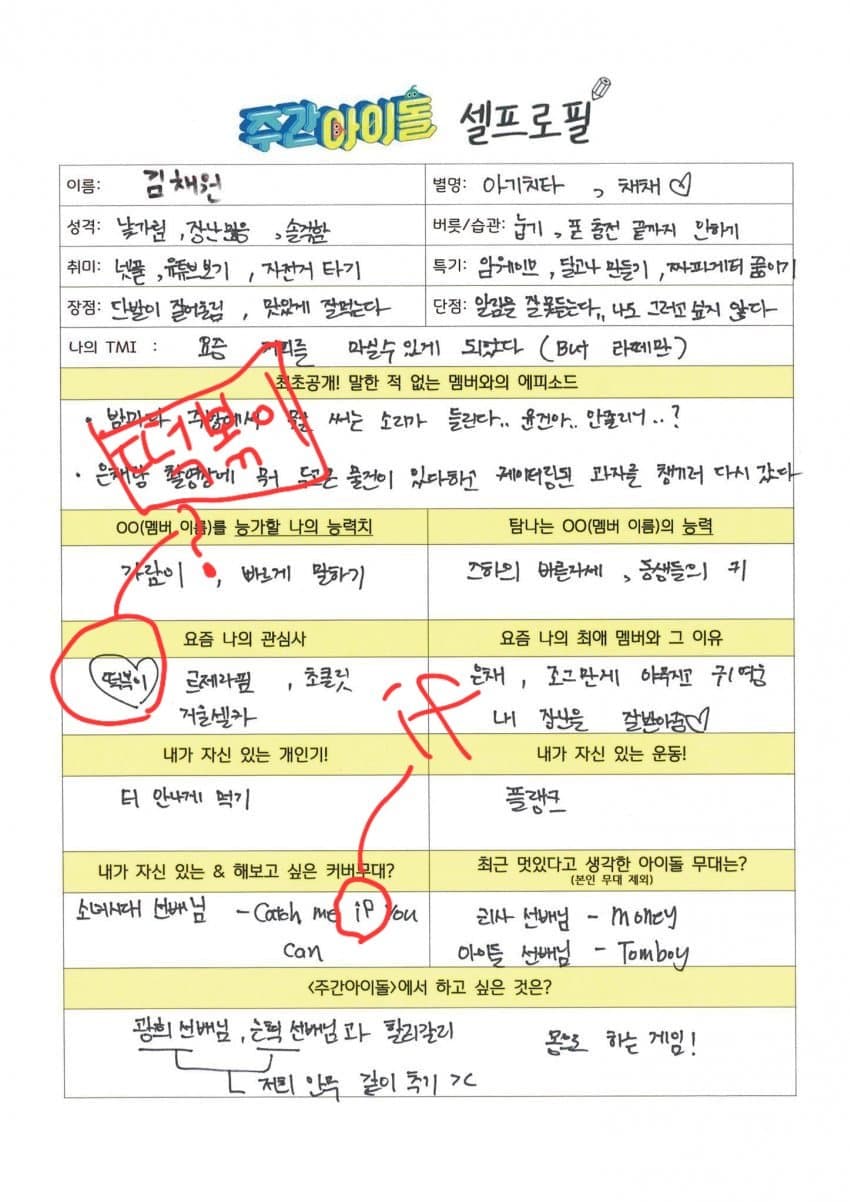 주간아이돌 셀프로필
이름: 김채원
별명: 아기치타, 채채♡
성격: 낯가림, 장난많음, 솔직함
버릇/습관: 눕기, 폰 충전 끝까지 안하기
취미: 넷플, 유튜브보기, 자전거 타기
특기: 암웨이브, 달고나 만들기, 짜파게티 끓이기
장점: 단발이 잘어울림, 맛있게 잘먹는다
단점: 알림을 잘 못듣는다,, 나도 그러고 싶지 않다
나의 TMI : 요즘 커피를 마실수있게 되었다 (But 라떼만)
최초공개! 말한 적 없는 멤버와의 에피소드
· 밤마다 주방에서 물 쓰는 소리가 들린다.. 윤진아.. 안졸리니..?
· 은채랑 촬영장에 뭐 두고온 물건이 있다하고 케이터링된 과자를 챙기러 다시 갔다
떡볶이
?
OO(멤버 이름)를 능가할 나의 능력치
탐나는 OO(멤버 이름)의 능력
가람이, 빠르게 말하기
즈하의 바른자세, 동생들의 키
요즘 나의 관심사
요즘 나의 최애 멤버와 그 이유
떡복이 르세라핌, 초콜릿
거울셀카
은채, 조그만게 야무지고 귀여움
내 장난을 잘받아줌♡
if
내가 자신 있는 개인기!
내가 자신 있는 운동!
티 안나게 먹기
플랭크
내가 자신 있는 & 해보고 싶은 커버무대?
최근 멋있다고 생각한 아이돌 무대는?
(본인 무대 제외)
소녀시대 선배님 - Catch me iP You
can
리사 선배님 - Money
아이들 선배님 - Tomboy
<주간아이돌>에서 하고 싶은 것은?
광희 선배님, 은혁 선배님과 컬리갈리
저희 안무 같이 추기 >
몸으로 하는 게임!